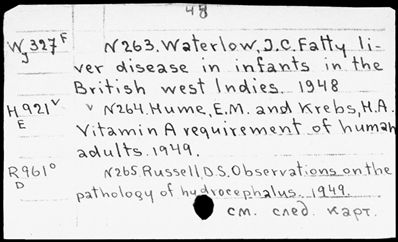 48
WJ327F N263. Waterlow, J.C. Fatty li-
ver disease in infants in the
British west Indies. 1948
H921V E v N264. Hume, E.M. and Krebs, H.A.
Vitamin A requirement of human
adults. 1949.
R961O D N265 Russell, D S. Observations on the
pathology of hydrocephalus. 1949.
см. след. карт.